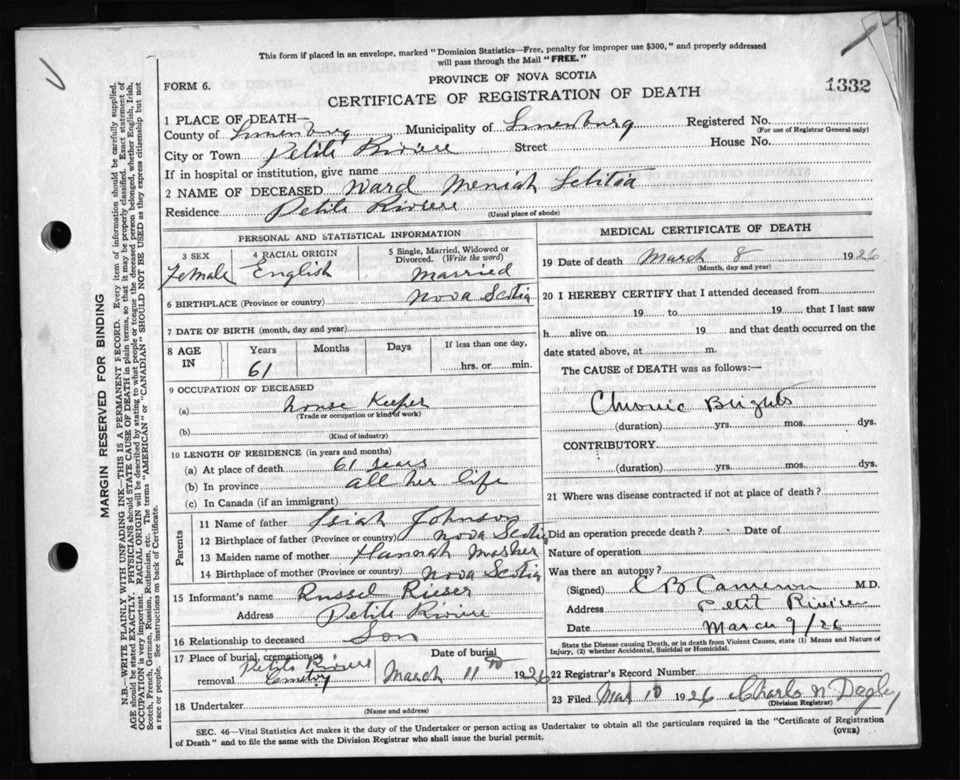 This form if placed in an envelope, marked "Dominion Statistics—Free, penalty for improper use $300," and properly addressed
will pass through the Mail "FREE."
PROVINCE OF NOVA SCOTIA
FORM 6.
CERTIFICATE OF REGISTRATION OF DEATH
1332
1 PLACE OF DEATH—
County of Lunenburg Municipality of Lunenburg Registered No.
(For use of Registrar General only)
City or Town Petite Riviere Street House No.
If in hospital or institution, give name
2 NAME OF DECEASED Ward Meniah Letitia
Residence Petite Riviere
(Usual place of abode)
PERSONAL AND STATISTICAL INFORMATION
3 SEX 4 RACIAL ORIGIN 5 Single, Married, Widowed or
Divorced. (Write the word)
Female English Married
6 BIRTHPLACE (Province or country) Nova Scotia
7 DATE OF BIRTH (month, day and year)
8 AGE IN Years Months Days If less than one day,
61 hrs. or min.
9 OCCUPATION OF DECEASED
(a) House Keeper
(Trade or occupation or kind of work)
(b)
(Kind of industry)
10 LENGTH OF RESIDENCE (in years and months)
(a) At place of death 61 years
(b) In province all her life
(c) In Canada (if an immigrant)
Parents
11 Name of father Isiah Johnson
12 Birthplace of father (Province or country) Nova Scotia
13 Maiden name of mother Hannah Mosher
14 Birthplace of mother (Province or country) Nova Scotia
15 Informant's name Russel Rieser
Address Petite Riviere
16 Relationship to deceased Son
17 Place of burial, cremation or removal Petite Riviere Cemetry
Date of burial
March 11th 1926
18 Undertaker
(Name and address)
MEDICAL CERTIFICATE OF DEATH
19 Date of death March 8 1926
(Month, day and year)
20 I HEREBY CERTIFY that I attended deceased from
19 to 19 that I last saw
h alive on 19 and that death occurred on the
date stated above, at m.
The CAUSE of DEATH was as follows:—
Chronic Brights
(duration) yrs. mos. dys.
CONTRIBUTORY
(duration) yrs. mos. dys.
21 Where was disease contracted if not at place of death?
Did an operation precede death? Date of
Nature of operation
Was there an autopsy?
(Signed) C B Cameron M.D.
Address Petit Riviere
Date March 9/26
State the Disease causing Death, or in death from Violent Causes, state (1) Means and Nature of
Injury, (2) whether Accidental, Suicidal or Homicidal.
22 Registrar's Record Number
23 Filed Mar 10 1926 Charls N Dagley
(Division Registrar)
SEC. 46—Vital Statistics Act makes it the duty of the Undertaker or person acting as Undertaker to obtain all the particulars required in the "Certificate of Registration
of Death" and to file the same with the Division Registrar who shall issue the burial permit.
(OVER)
MARGIN RESERVED FOR BINDING
N.B.—WRITE PLAINLY WITH UNFADING INK—THIS IS A PERMANENT RECORD. Every item of information should be carefully supplied.
AGE should be stated EXACTLY. PHYSICIANS should STATE CAUSE OF DEATH in plain terms, so that it may be properly classified. Exact statement of
OCCUPATION is very important. RACIAL ORIGIN will be described by stating to what people or tongue the deceased person belonged, whether English, Irish,
Scotch, French, German, Russian, Ruthenian, etc. The terms "AMERICAN" or "CANADIAN" SHOULD NOT BE USED as they express citizenship but not
a race or people. See instructions on back of Certificate.